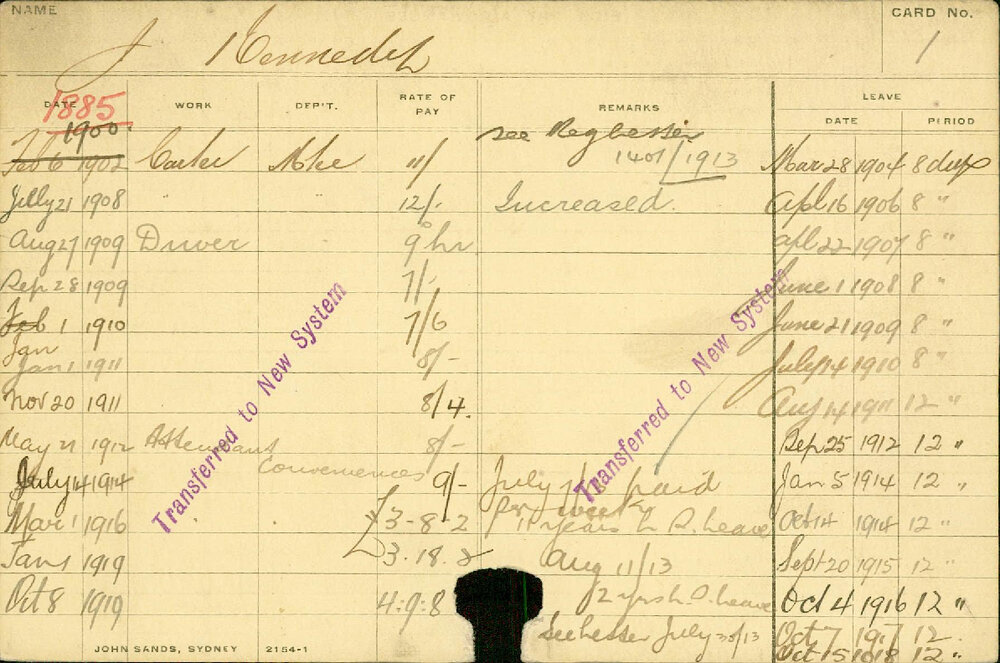 NAME
CARD No.
J Kennedy
1
DATE WORK DEP'T. RATE OF PAY REMARKS LEAVE
DATE PERIOD
1885
1900
Feb 6 1902 Carter 11/ See 1401/1913 Mar 28 1904 8 days
July 21 1908 12/- Increased. Apl 16 1906 8 "
Aug 27 1909 Driver 9 hr apl 22 1907 8 "
Sep 28 1909 7/- June 1 1908 8 "
Feb 1 1910 7/6 June 21 1909 8 "
Jan
Jan 1 1911 8/- July 14 1910 8 "
Nov 20 1911 8/4. Aug 14 1911 12 "
May 21 1912 Attendant 8/- Sep 25 1912 12 "
Conveniences
July 14 1914 9/- July paid Jan 5 1914 12 "
per week
Mar 1 1916 £3-8-2 years L S. Leave Oct 4 1914 12 "
Jan 1 1919 £3.18.2 Aug 11/13 Sept 20 1915 12 "
Oct 8 1919 4:9:8 Leave Oct 4 1916 12 "
July 30/13 Oct 7 1917 12.
Oct 15 1918 12 "
Transferred to New System
Transferred to New System
JOHN SANDS, SYDNEY 2154-1